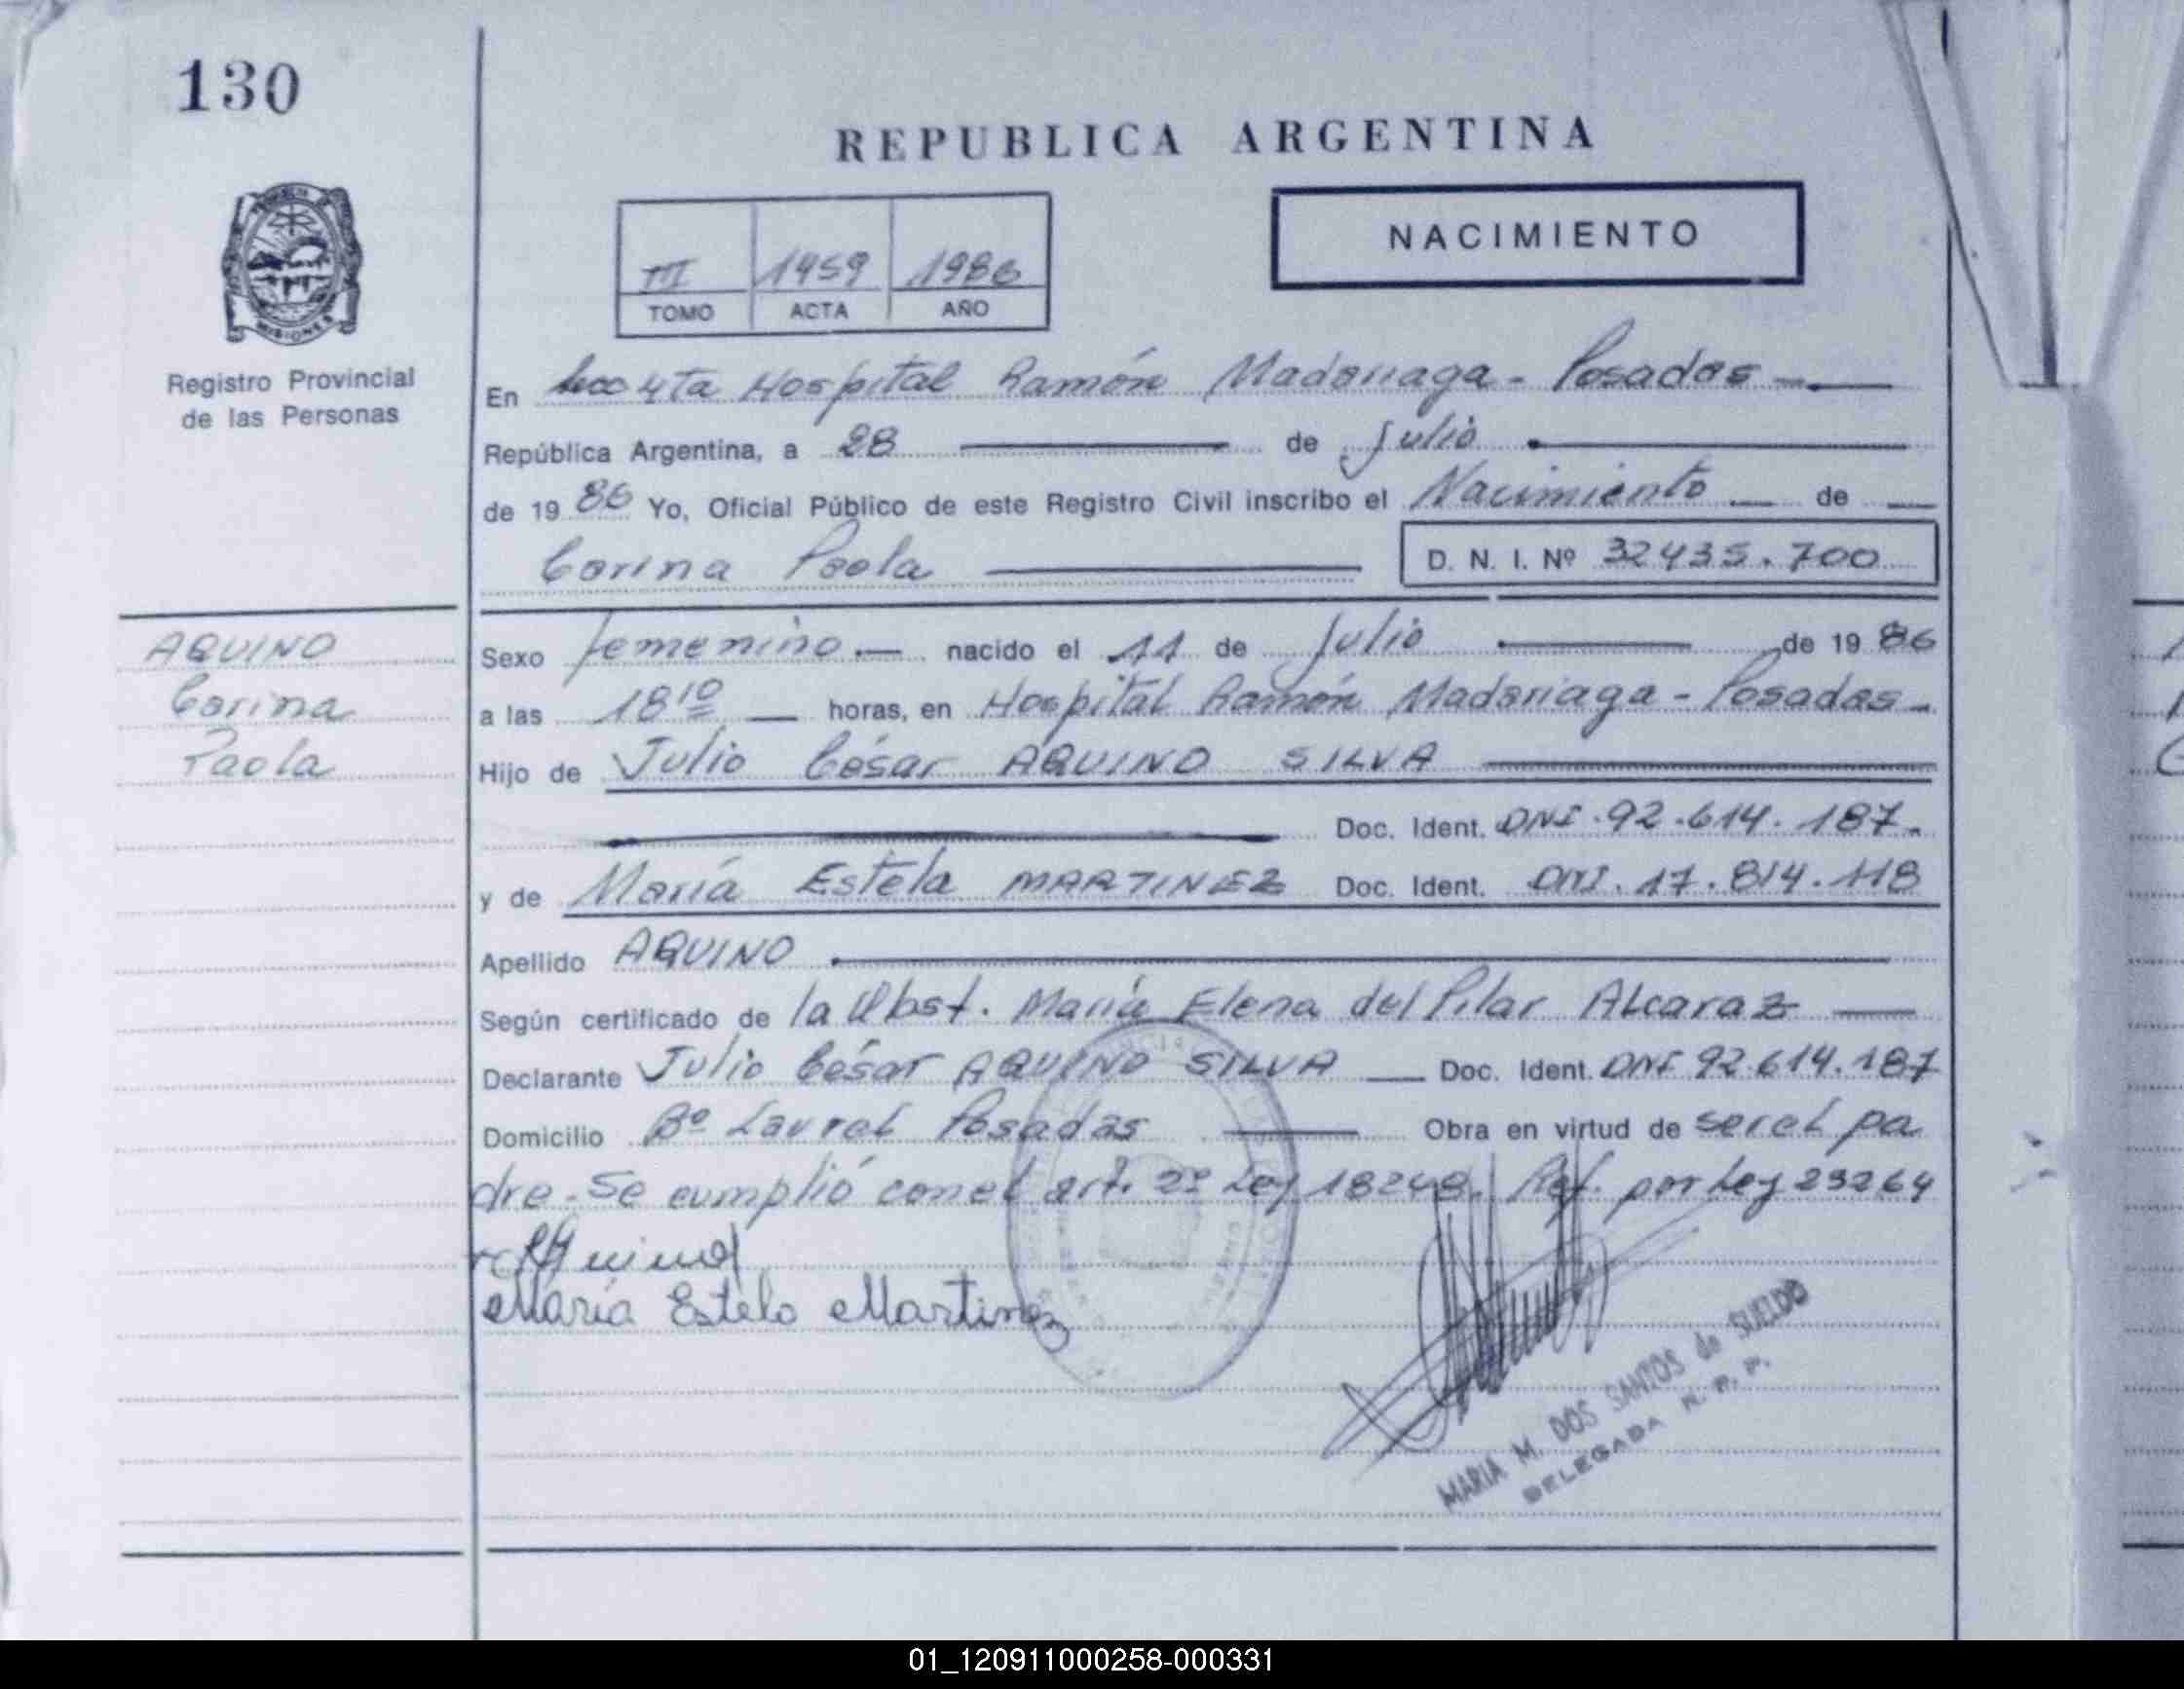 130
REPUBLICA ARGENTINA
NACIMIENTO
III 1459 1986
TOMO ACTA AÑO
MISIONES
Registro Provincial
de las Personas
En Secc 4ta Hospital Ramón Madariaga - Posadas
República Argentina, a 28 de Julio
de 1986 Yo, Oficial Público de este Registro Civil inscribo el Nacimiento de
Corina Paola D. N. I. Nº 32435.700
AQUINO
Corina
Paola
Sexo femenino.- nacido el 11 de Julio de 1986
a las 18 10 horas, en Hospital Ramón Madariaga - Posadas -
Hijo de Julio César AQUINO SILVA
Doc. Ident. DNI .92.614.187.
y de María Estela MARTINEZ Doc. Ident. DNI. 17.814.118
Apellido AQUINO
Según certificado de la Obst. María Elena del Pilar Alcaraz
Declarante Julio César AQUINO SILVA Doc. Ident. DNI 92.614.187
Domicilio Bº Laurel Posadas Obra en virtud de ser el pa
dre. Se cumplió con el art. 2º Ley 18248. Ref. por Ley 23264
María Estela Martinez
MARIA M. DOS SANTOS de SUELDO
DELEGADA R. P. P.
01_120911000258-000331